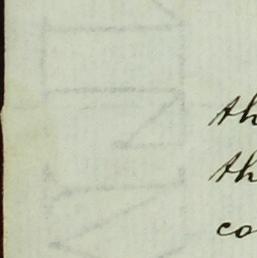 th
th
co